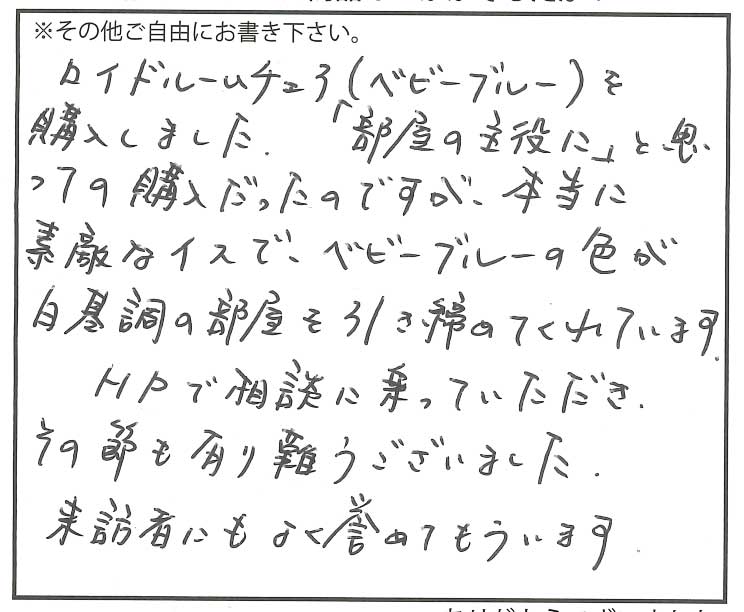 ※その他ご自由にお書き下さい。
ロイドルームチェア(ベビーブルー)を
購入しました. 「部屋の主役に」と思
っての購入だったのですが、本当に
素敵なイスで、ベビーブルーの色が
白基調の部屋を引き締めてくれています.
HPで相談に乗っていただき.
その節も有り難うございました.
来訪者にもよく誉めてもらいます.